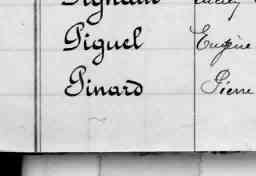 Piguel Eugène
Pinard Pierre